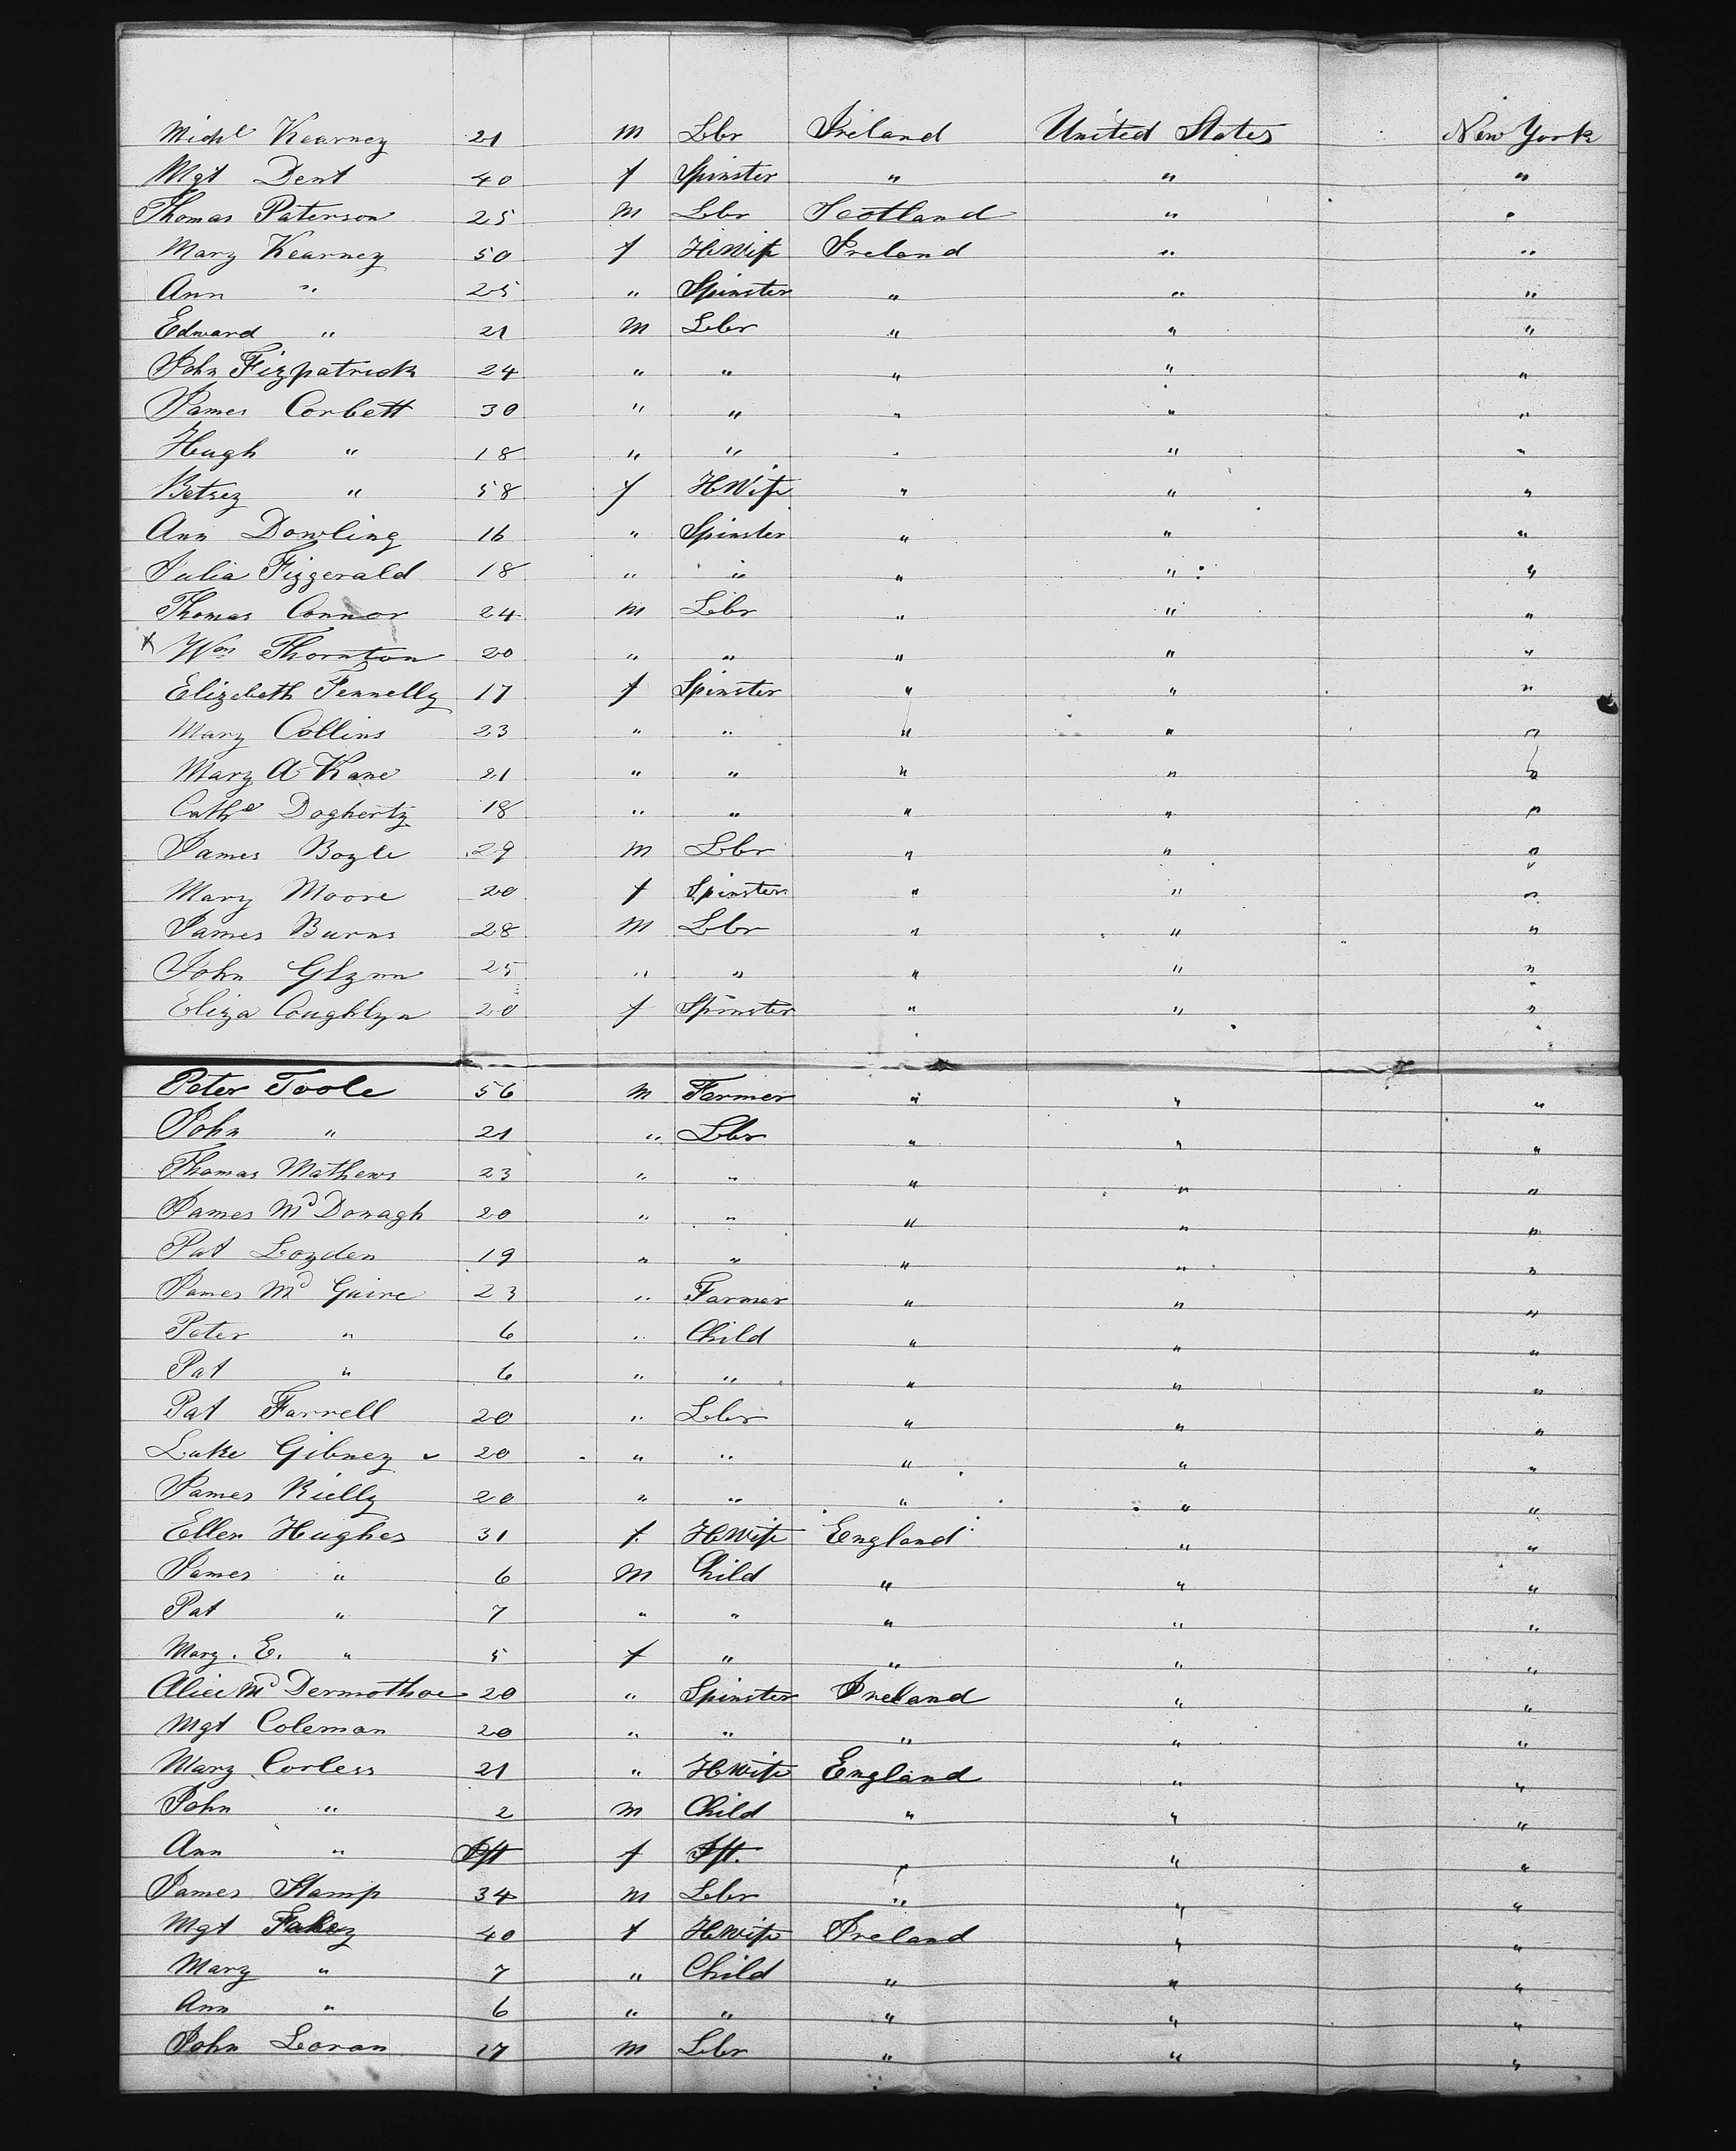 Michl Kearney 21 m Lbr Ireland United States New York
Mgt Dent 40 f Spinster " " "
Thomas Paterson 25 m Lbr Scotland " "
Mary Kearney 50 f HWife Ireland " "
Ann " 25 " Spinster " " "
Edward " 21 m Lbr " " "
John Fizpatrick 24 " " " " "
James Corbett 30 " " " " "
Hugh " 18 " " " " "
Betsey " 58 f HWife " " "
Ann Dowling 16 " Spinster " " "
Julia Fizgerald 18 " " " " "
Thomas Connor 24 m Lbr " " "
x Wm Thornton 20 " " " " "
Elizebeth Fennelly 17 f Spinster " " "
Mary Collins 23 " " " " "
Mary A Kane 21 " " " " "
Cathe Dogherty 18 " " " " "
James Boyle 29 m Lbr " " "
Mary Moore 20 f Spinster " " "
James Burns 28 m Lbr " " "
John Glynn 25 " " " " "
Eliza Coughlyn 20 f Spinster " " "
Peter Toole 56 m Farmer " " "
John " 21 " Lbr " " "
Thomas Mathews 23 " " " " "
James Mc Donagh 20 " " " " "
Pat Loyden 19 " " " " "
James Mc Guire 23 " Farmer " " "
Peter " 6 " Child " " "
Pat " 6 " " " " "
Pat Farrell 20 " Lbr " " "
Luke Gibney 20 " " " " "
James Rielly 20 " " " " "
Ellen Hughes 31 f HWife England " "
James " 6 m Child " " "
Pat " 7 " " " " "
Mary. E. " 5 f " " " "
Alice Mc 20 " Spinster Ireland " "
Mgt Coleman 20 " " " " "
Mary Corless 21 " HWife England " "
John " 2 m Child " " "
Ann " Ift f Ift. " " "
James Stamp 34 m Lbr " " "
Mgt Fahey 40 f HWife Ireland " "
Mary " 7 " Child " " "
Ann " 6 " " " " "
John Loran 17 m Lbr " " "